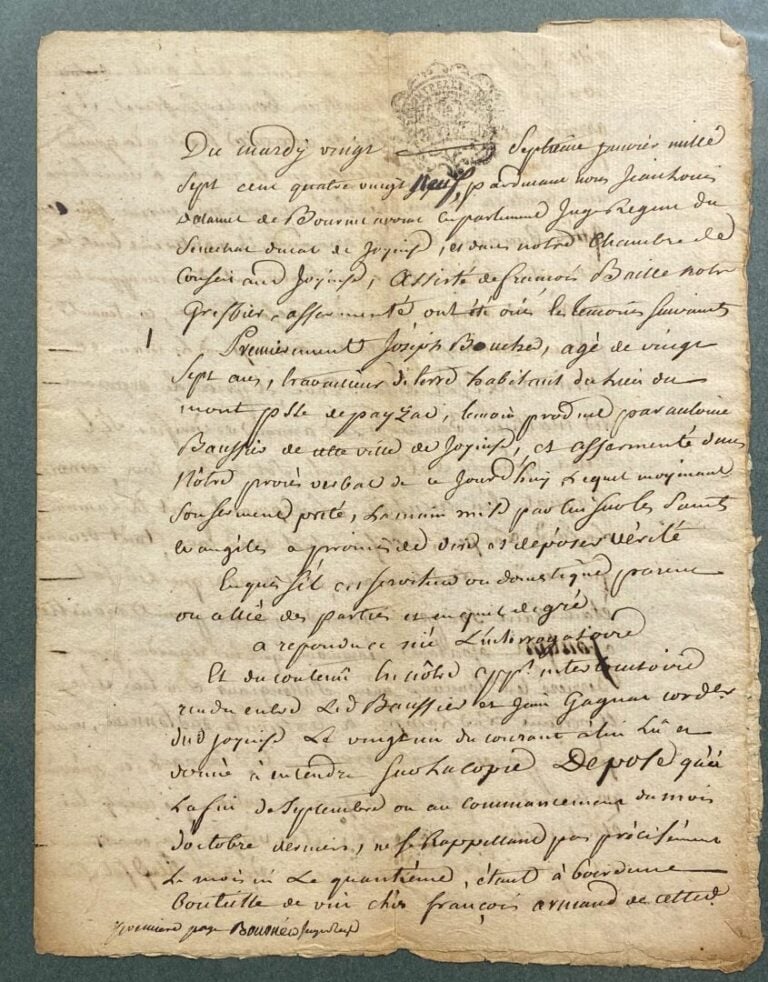 Du mardy vingt Septieme janvier mille
Sept cent quatre vingt neuf, pardevant nous Jean Louis
de Bournet avocat en parlement Juge Regent du
Senechal ducal de Joyeuse, et dans notre Chambre de
Conseil aud Joyeuse, assisté de françois Baille notre
Greffier assermenté ont été ouis les temoins Suivants
Premierement Joseph Bouchet, agé de vingt
Sept ans, travailleur de terre habitant du lieu du
mont psse de payzac, temoin produit par antoine
Baussier de cette ville de Joyeuse, et assermenté dans
Nôtre procés verbal de ce Jourdhuy Lequel moyenant
Son serment preté, La main mise par lui sur les Saints
evangiles a promis de dire et deposer vérité
Enquis s'il est serviteur ou domestique parent
ou allié des parties et en quel degré,
a repondu et nié L'interrogatoire
Et du contenu en nôtre app.t interlocutoire
rendu entre Led Baussier et Jean Gagnac cordier
dud Joyeuse Le vingt un du courant à lui Lû et
donné à entendre Sur La copie Depose qu'à
La fin de Septembre ou au commancement du mois
d'octobre dernier, ne se Rappellant pas précisément
Le mois ni Le quantième, étant à boire une
bouteille de vin chés françois armand de cette
premiere page Bournet juge